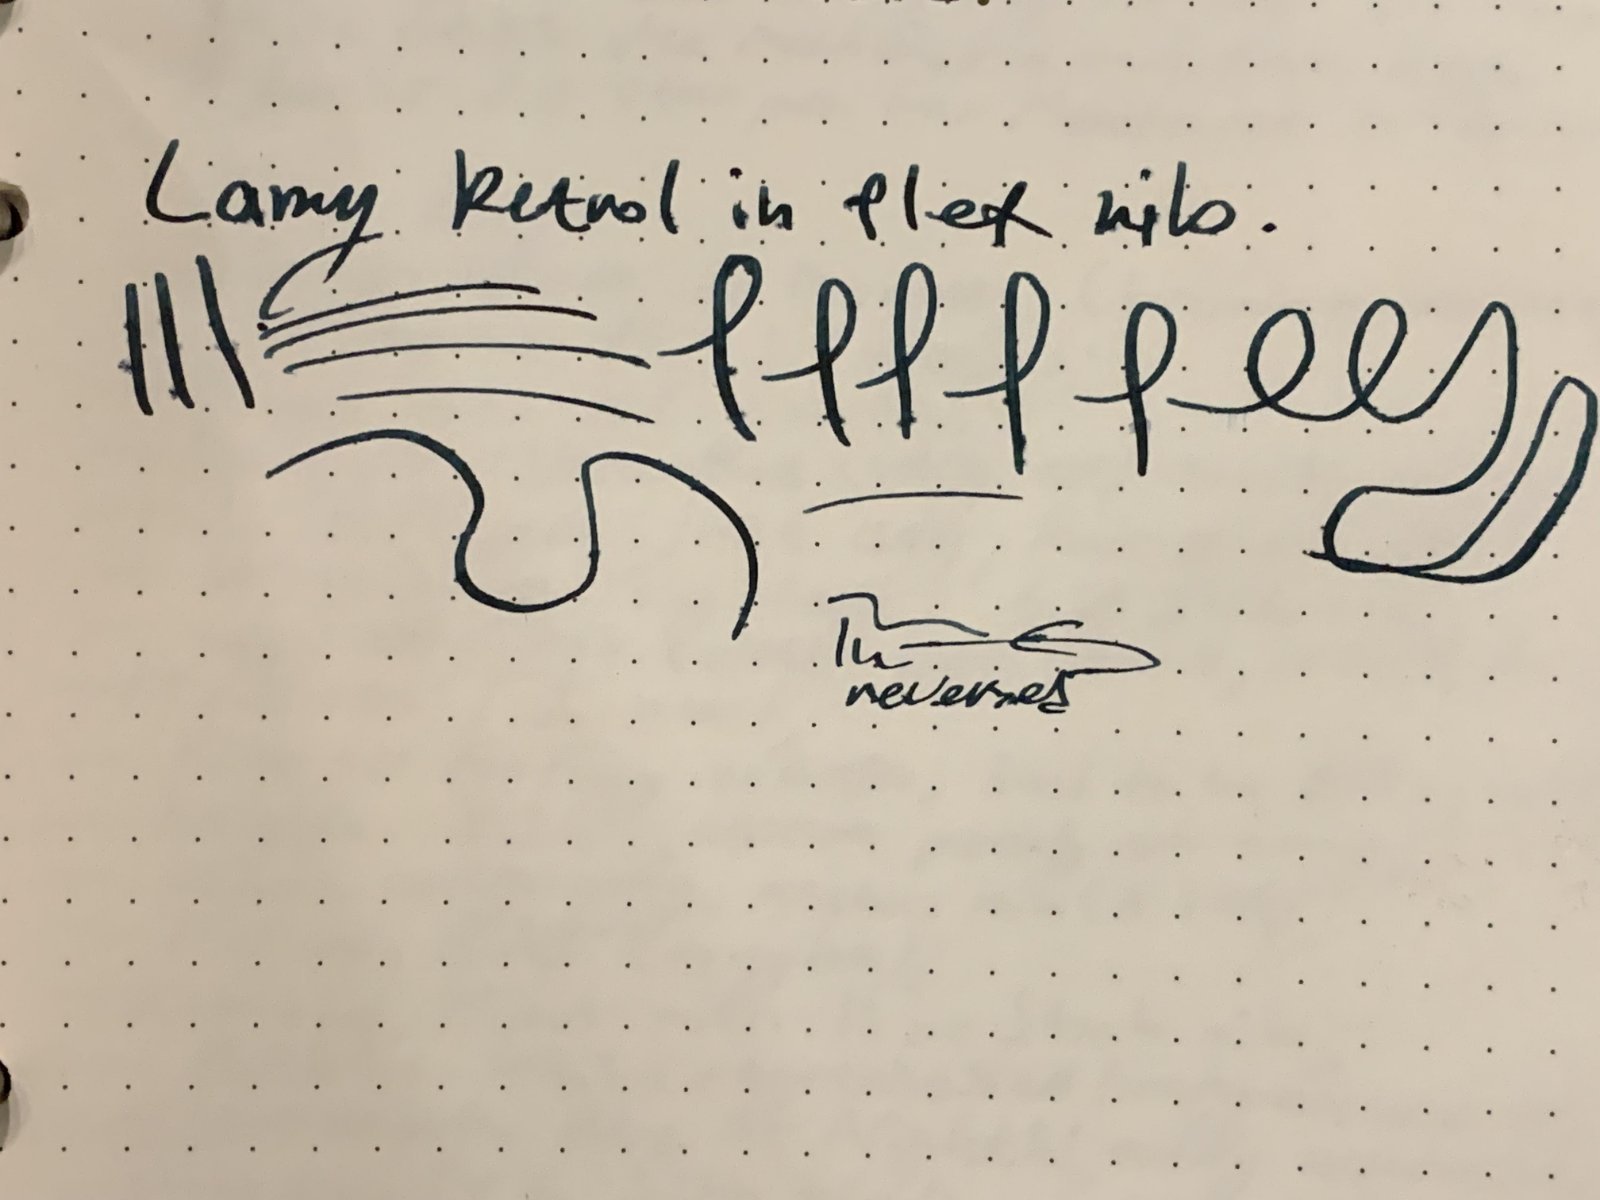 Lamy Petrol in flex nib.
In
reversed